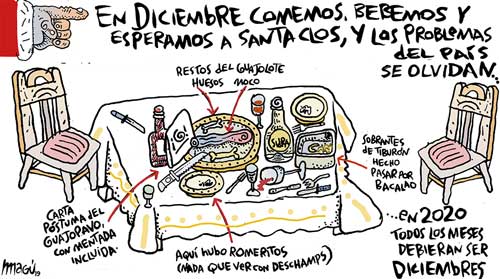 EN DICIEMBRE COMEMOS, BEBEMOS Y
ESPERAMOS A SANTACLOS, Y LOS PROBLEMAS
DEL PAÍS
SE OLVIDAN.
RESTOS DEL GUAJOLOTE
HUESOS MOCO
SUPA
SOBRANTES
DE TIBURÓN
HECHO
PASAR POR
BACALAO
CARTA
PÓSTUMA DEL
GUAJOPAVO,
CON MENTADA
INCLUIDA.
AQUÍ HUBO ROMERITOS
(NADA QUE VER CON DESCHAMPS)
...EN 2020
TODOS LOS MESES
DEBIERAN SER
DICIEMBRES
MAGÚ 19